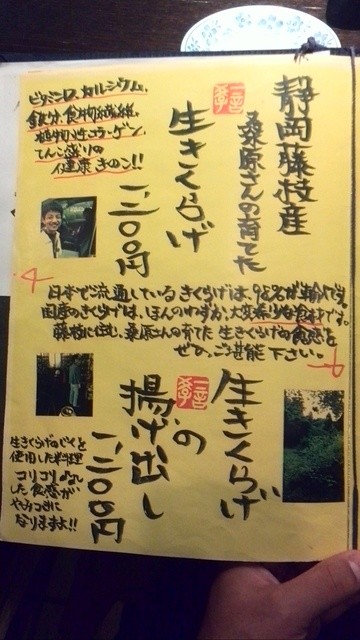 静岡藤枝産
桑原さんの育てた
生きくらげ
一、二〇〇円
ビタミンD、カルシウム、
鉄分、食物繊維、
植物性コラーゲン
てんこ盛りの
健康きのこ!!
日本で流通しているきくらげは、98%が輸入です。
国産のきくらげは、ほんのわずか、大変希少な食材です。
藤枝に住む、桑原さんの育てた生きくらげの食感を
ぜひ、ご堪能下さい。
生きくらげ
の
揚げ出し
一、二〇〇円
生きくらげのじくを
使用した料理
コリコリ
した食感が
やみつきに
なりますよ!!